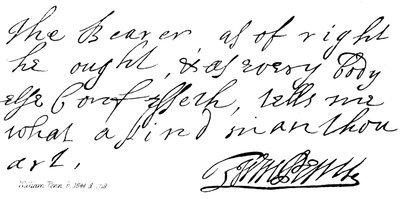 the Bearer as of right
he ought, & as every body
else Confesseth, tells me
what a kind man thou
art,
Wm Penn
William Penn b. 1644 d. 1718